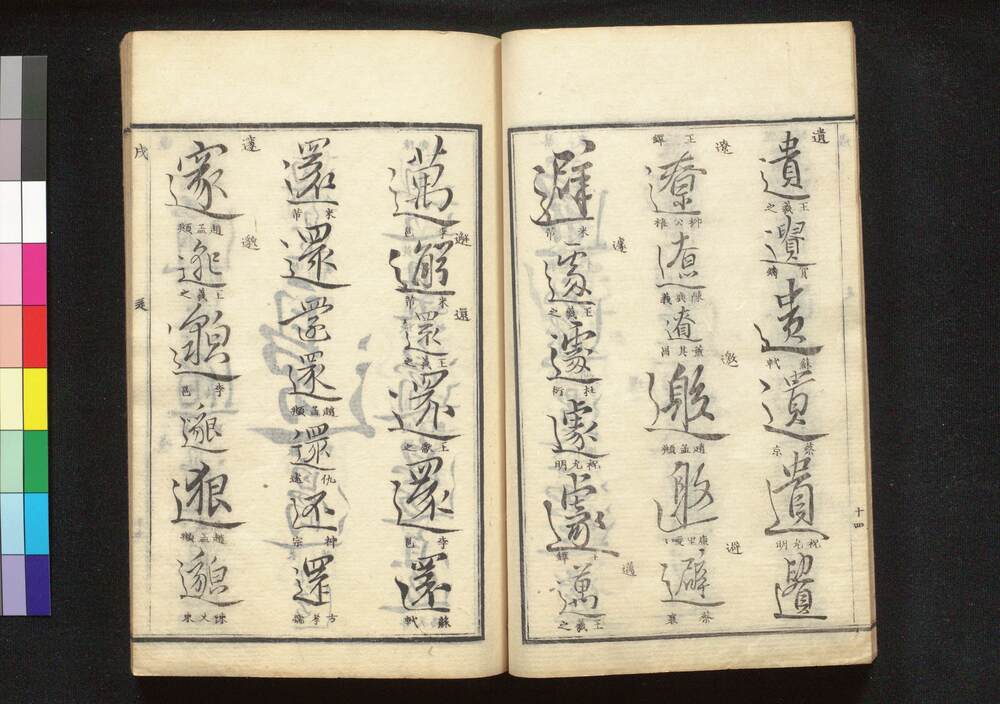 遺
遺 王羲之
遺
遺 蘇軾
遺
遺 祝允明
遺
十四
遼
王鐸
遼 柳公權
遼
遼 董其昌
邀
邀 趙孟頫
邀 康里巎
避
避 蔡襄
避 米芾
遽
遽 王羲之
遽 杜衍
遽 祝允明
遽
邁
邁 王羲之
邁 李邕
邂
邂 米芾
還
還 王羲之
還 王獻之
還 李邕
還 蘇軾
還 米芾
還
還
還 趙孟頫
還 仇遠
還 神宗
還 方孝孺
邃
邃 趙孟頫
邈
邈 王羲之
邈 李邕
邈
邈 趙孟頫
邈
戌